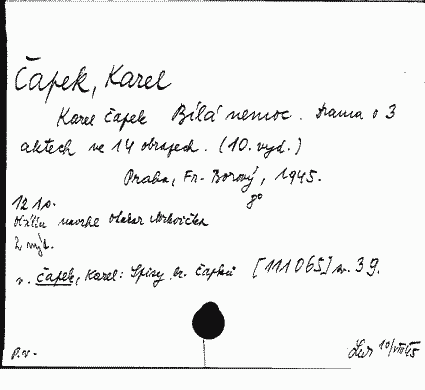 Čapek, Karel
Karel Čapek Bílá nemoc. Drama o 3
aktech ve 14 obrazech. (10. vyd.)
Praha, Fr. Borový, 1945.
8°
121 s.
Obálku navrhl Otakar Mrkvička
2. výt.
v. Čapek, Karel: Spisy br. Čapků [111065] sv. 39.
P.v. 10/VIII 45